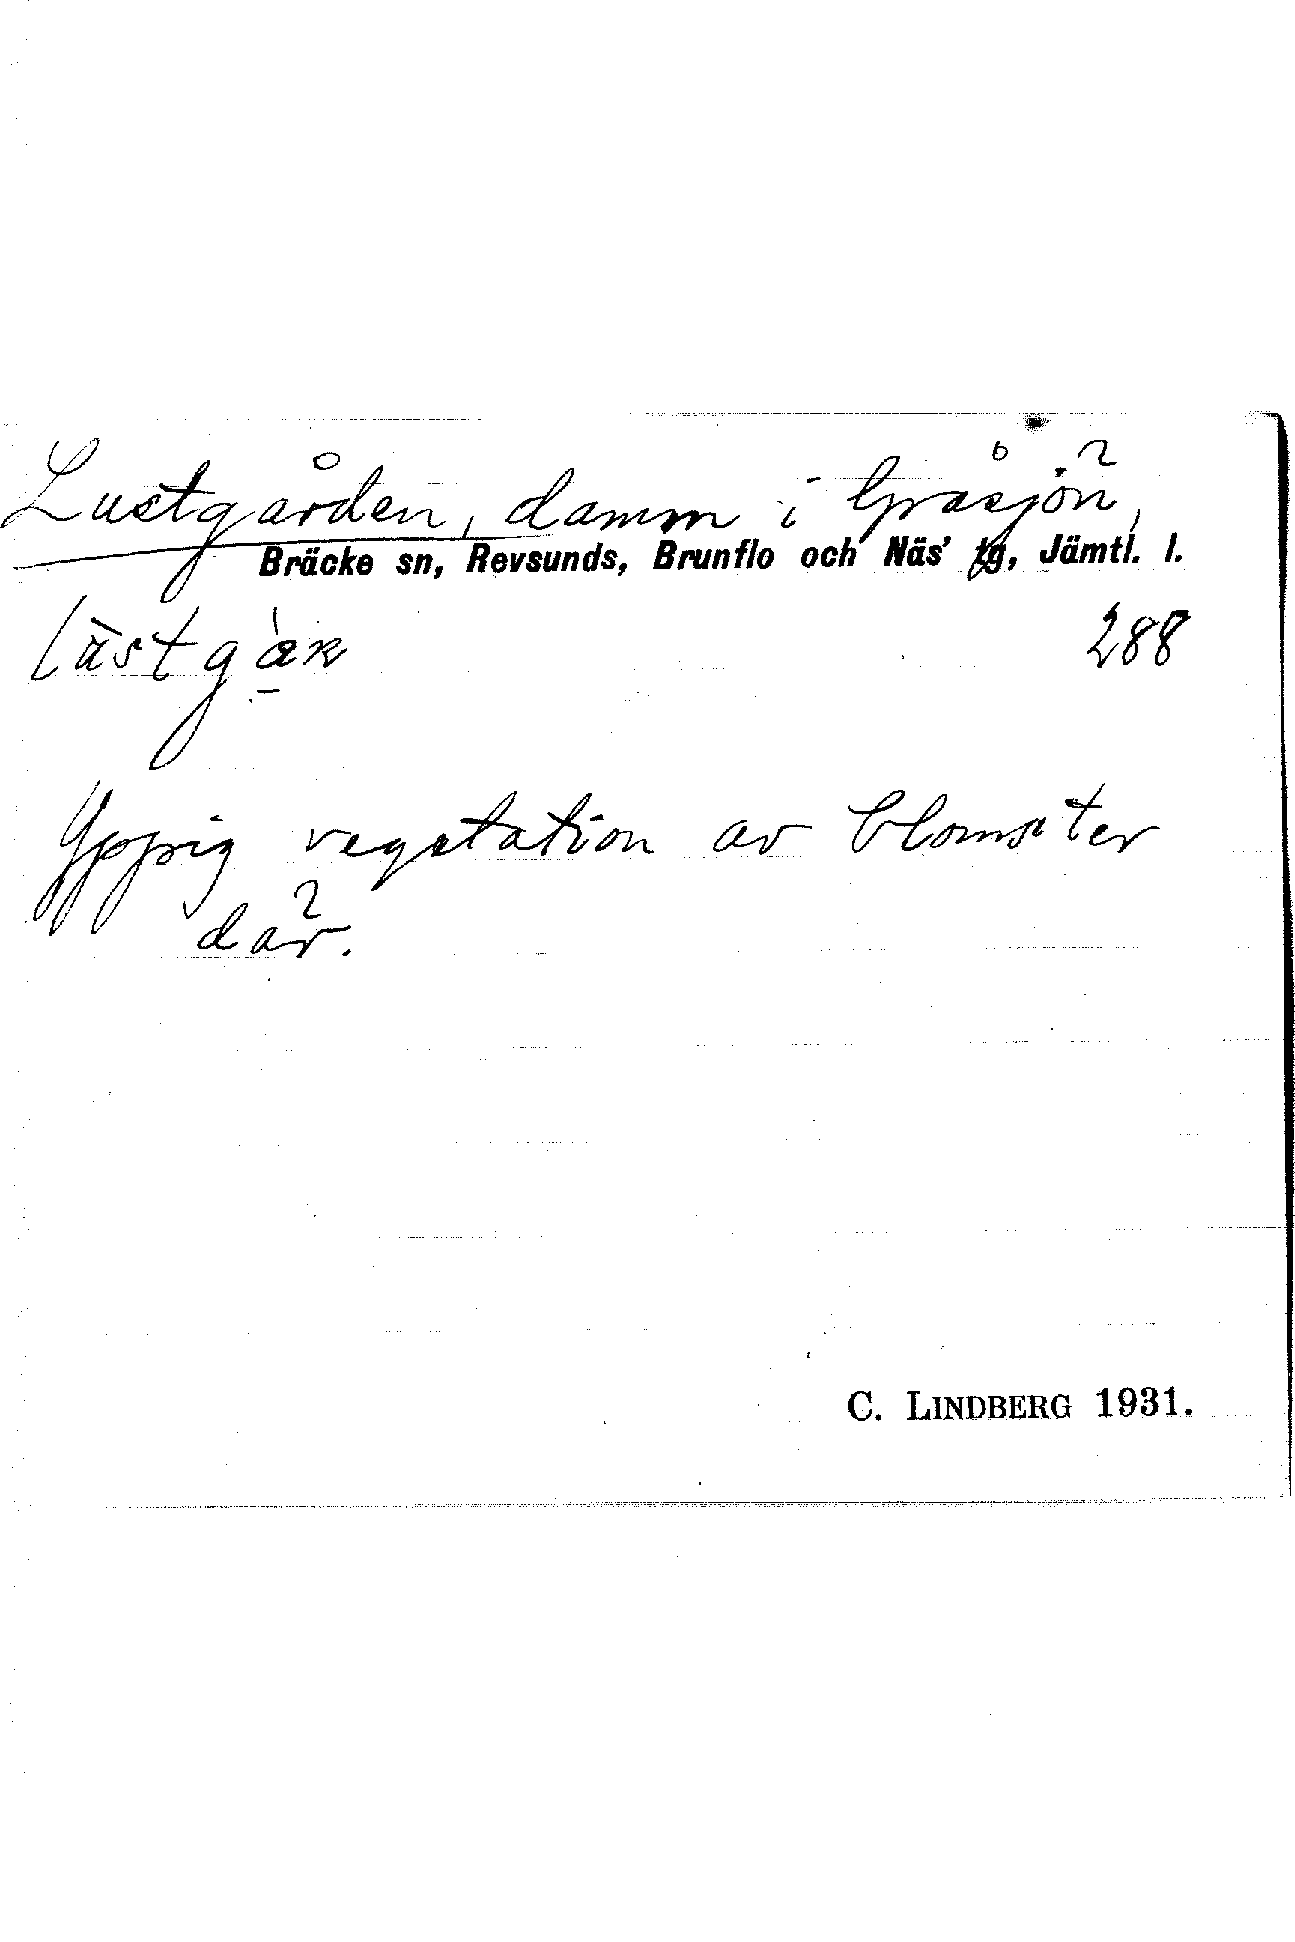 Lustgården, damm i Gråsjön,
Bräcke sn, Revsunds, Brunflo och Näs' tg, Jämtl. l.
288
Yppig vegetation av blomster
där.
C. LINDBERG 1931.